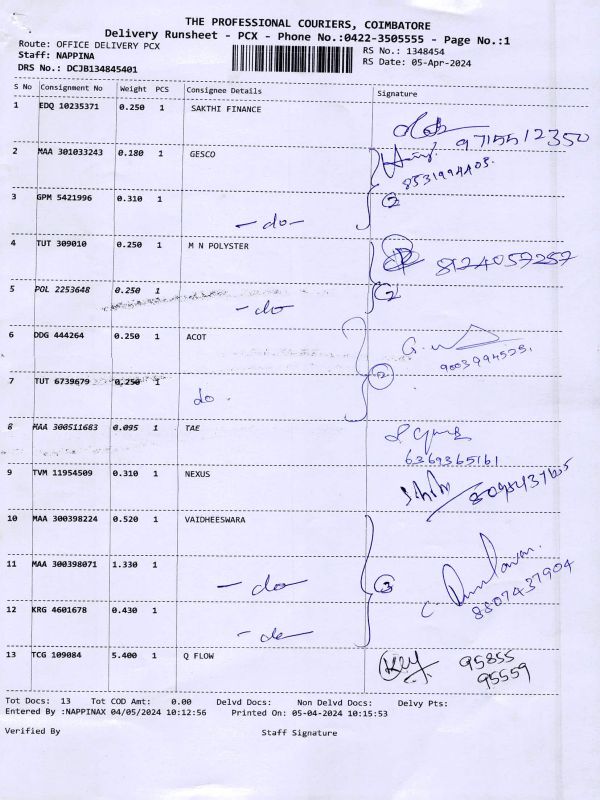 THE PROFESSIONAL COURIERS, COIMBATORE
Delivery Runsheet - PCX - Phone No.:0422-3505555 - Page No.:1
Route: OFFICE DELIVERY PCX RS No.: 1348454
Staff: NAPPINA RS Date: 05-Apr-2024
DRS No.: DCJB134845401
S No Consignment No Weight PCS Consignee Details Signature
1 EDQ 10235371 0.250 1 SAKTHI FINANCE
9715512350
2 MAA 301033243 0.180 1 GESCO
8531994403.
3 GPM 5421996 0.310 1 - do - 2
4 TUT 309010 0.250 1 M N POLYSTER 8124057257
5 POL 2253648 0.250 1 - do 2
6 DDG 444264 0.250 1 ACOT
9003994525.
7 TUT 6739679 0.250 1 do . 2
8 MAA 300511683 0.095 1 TAE
6369365161
9 TVM 11954509 0.310 1 NEXUS
10 MAA 300398224 0.520 1 VAIDHEESWARA
11 MAA 300398071 1.330 1 - do 3
8807437904
12 KRG 4601678 0.430 1 - do
13 TCG 109084 5.400 1 Q FLOW 95855
95559
Tot Docs: 13 Tot COD Amt: 0.00 Delvd Docs: Non Delvd Docs: Delvy Pts:
Entered By :NAPPINAX 04/05/2024 10:12:56 Printed On: 05-04-2024 10:15:53
Verified By Staff Signature